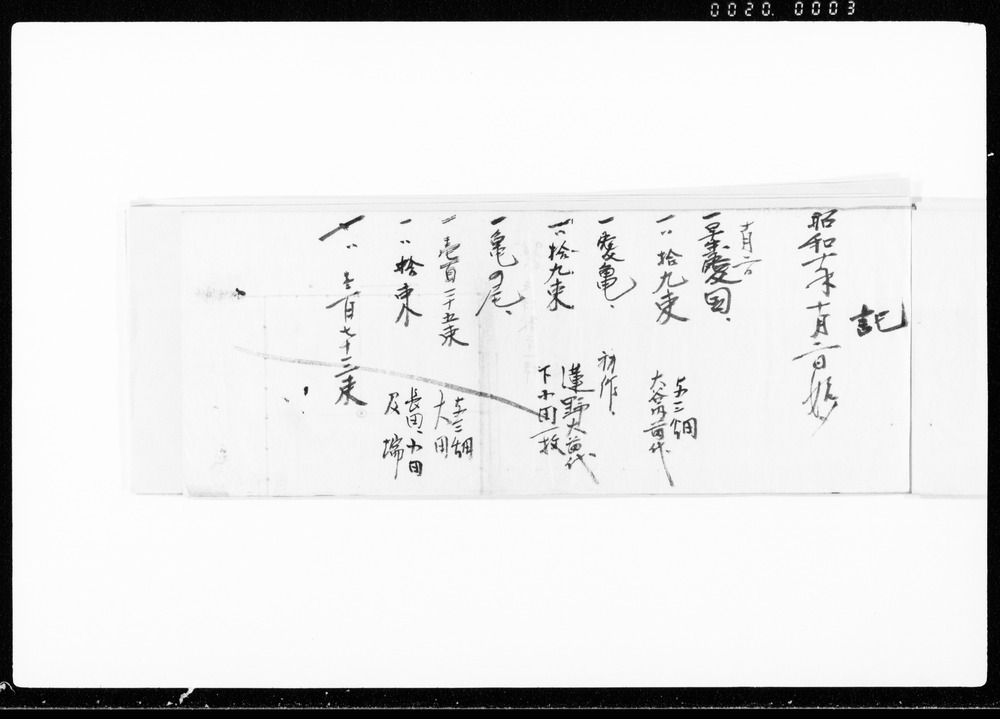 0020. 0003
記
昭和十年十月二日始
十月二日
一 早愛国、
一〃拾九束
与三畑
大谷内苗代
一 愛亀、
初作、
一〃拾九束
蓮野大苗代
下小田一枚
一 亀の尾、
〃壱百二十五束
与三畑
大田
一〃拾束
長田、小田
及端
〃壱百七十三束